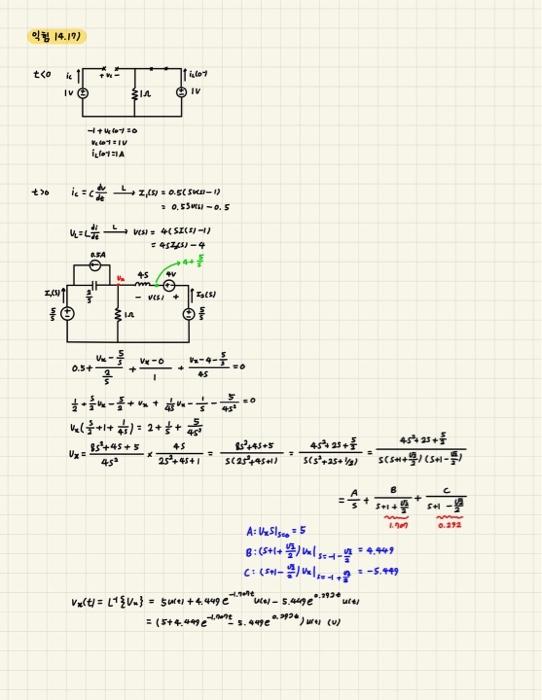 익힘 14.17)
t<0 i_c + v_c - i_L(0⁻)
1V 1Ω 1V
-1+v_c(0⁻)=0
v_c(0⁻)=1V
i_L(0⁻)=1A
t>0 i_c = C dv/dt —L→ I_1(s) = 0.5(sV(s)-1)
= 0.5sV(s)-0.5
V_L=L di/dt —L→ V(s) = 4(sI(s)-1)
= 4sI_2(s)-4
0.5A 4+5/s
V_x 4s 4V
I_1(s) 2/s - V(s) + I_2(s)
5/s 1Ω 5/s
0.5+(V_x-5/s)/(2/s)+(V_x-0)/1+(V_x-4-5/s)/4s=0
1/2+s/2 V_x-5/2+V_x+1/4s V_x-1/s-5/4s²=0
V_x(s/2+1+1/4s)=2+1/s+5/4s²
V_x=(8s²+4s+5)/4s² × 4s/(2s²+4s+1) = (8s²+4s+5)/s(2s²+4s+1) = (4s²+2s+5/2)/s(s²+2s+1/2) = (4s²+2s+5/2)/s(s+1+√2/2)(s+1-√2/2)
= A/s + B/(s+1+√2/2) + C/(s+1-√2/2)
1.707 0.292
A: V_x s|s=0 = 5
B: (s+1+√2/2)V_x|s=-1-√2/2 = 4.449
C: (s+1-√2/2)V_x|s=-1+√2/2 = -5.449
V_x(t)= L⁻¹{V_x} = 5u(t)+4.449e^-1.707t u(t)-5.449e^0.292t u(t)
=(5+4.449e^-1.707t-5.449e^0.292t)u(t) (V)